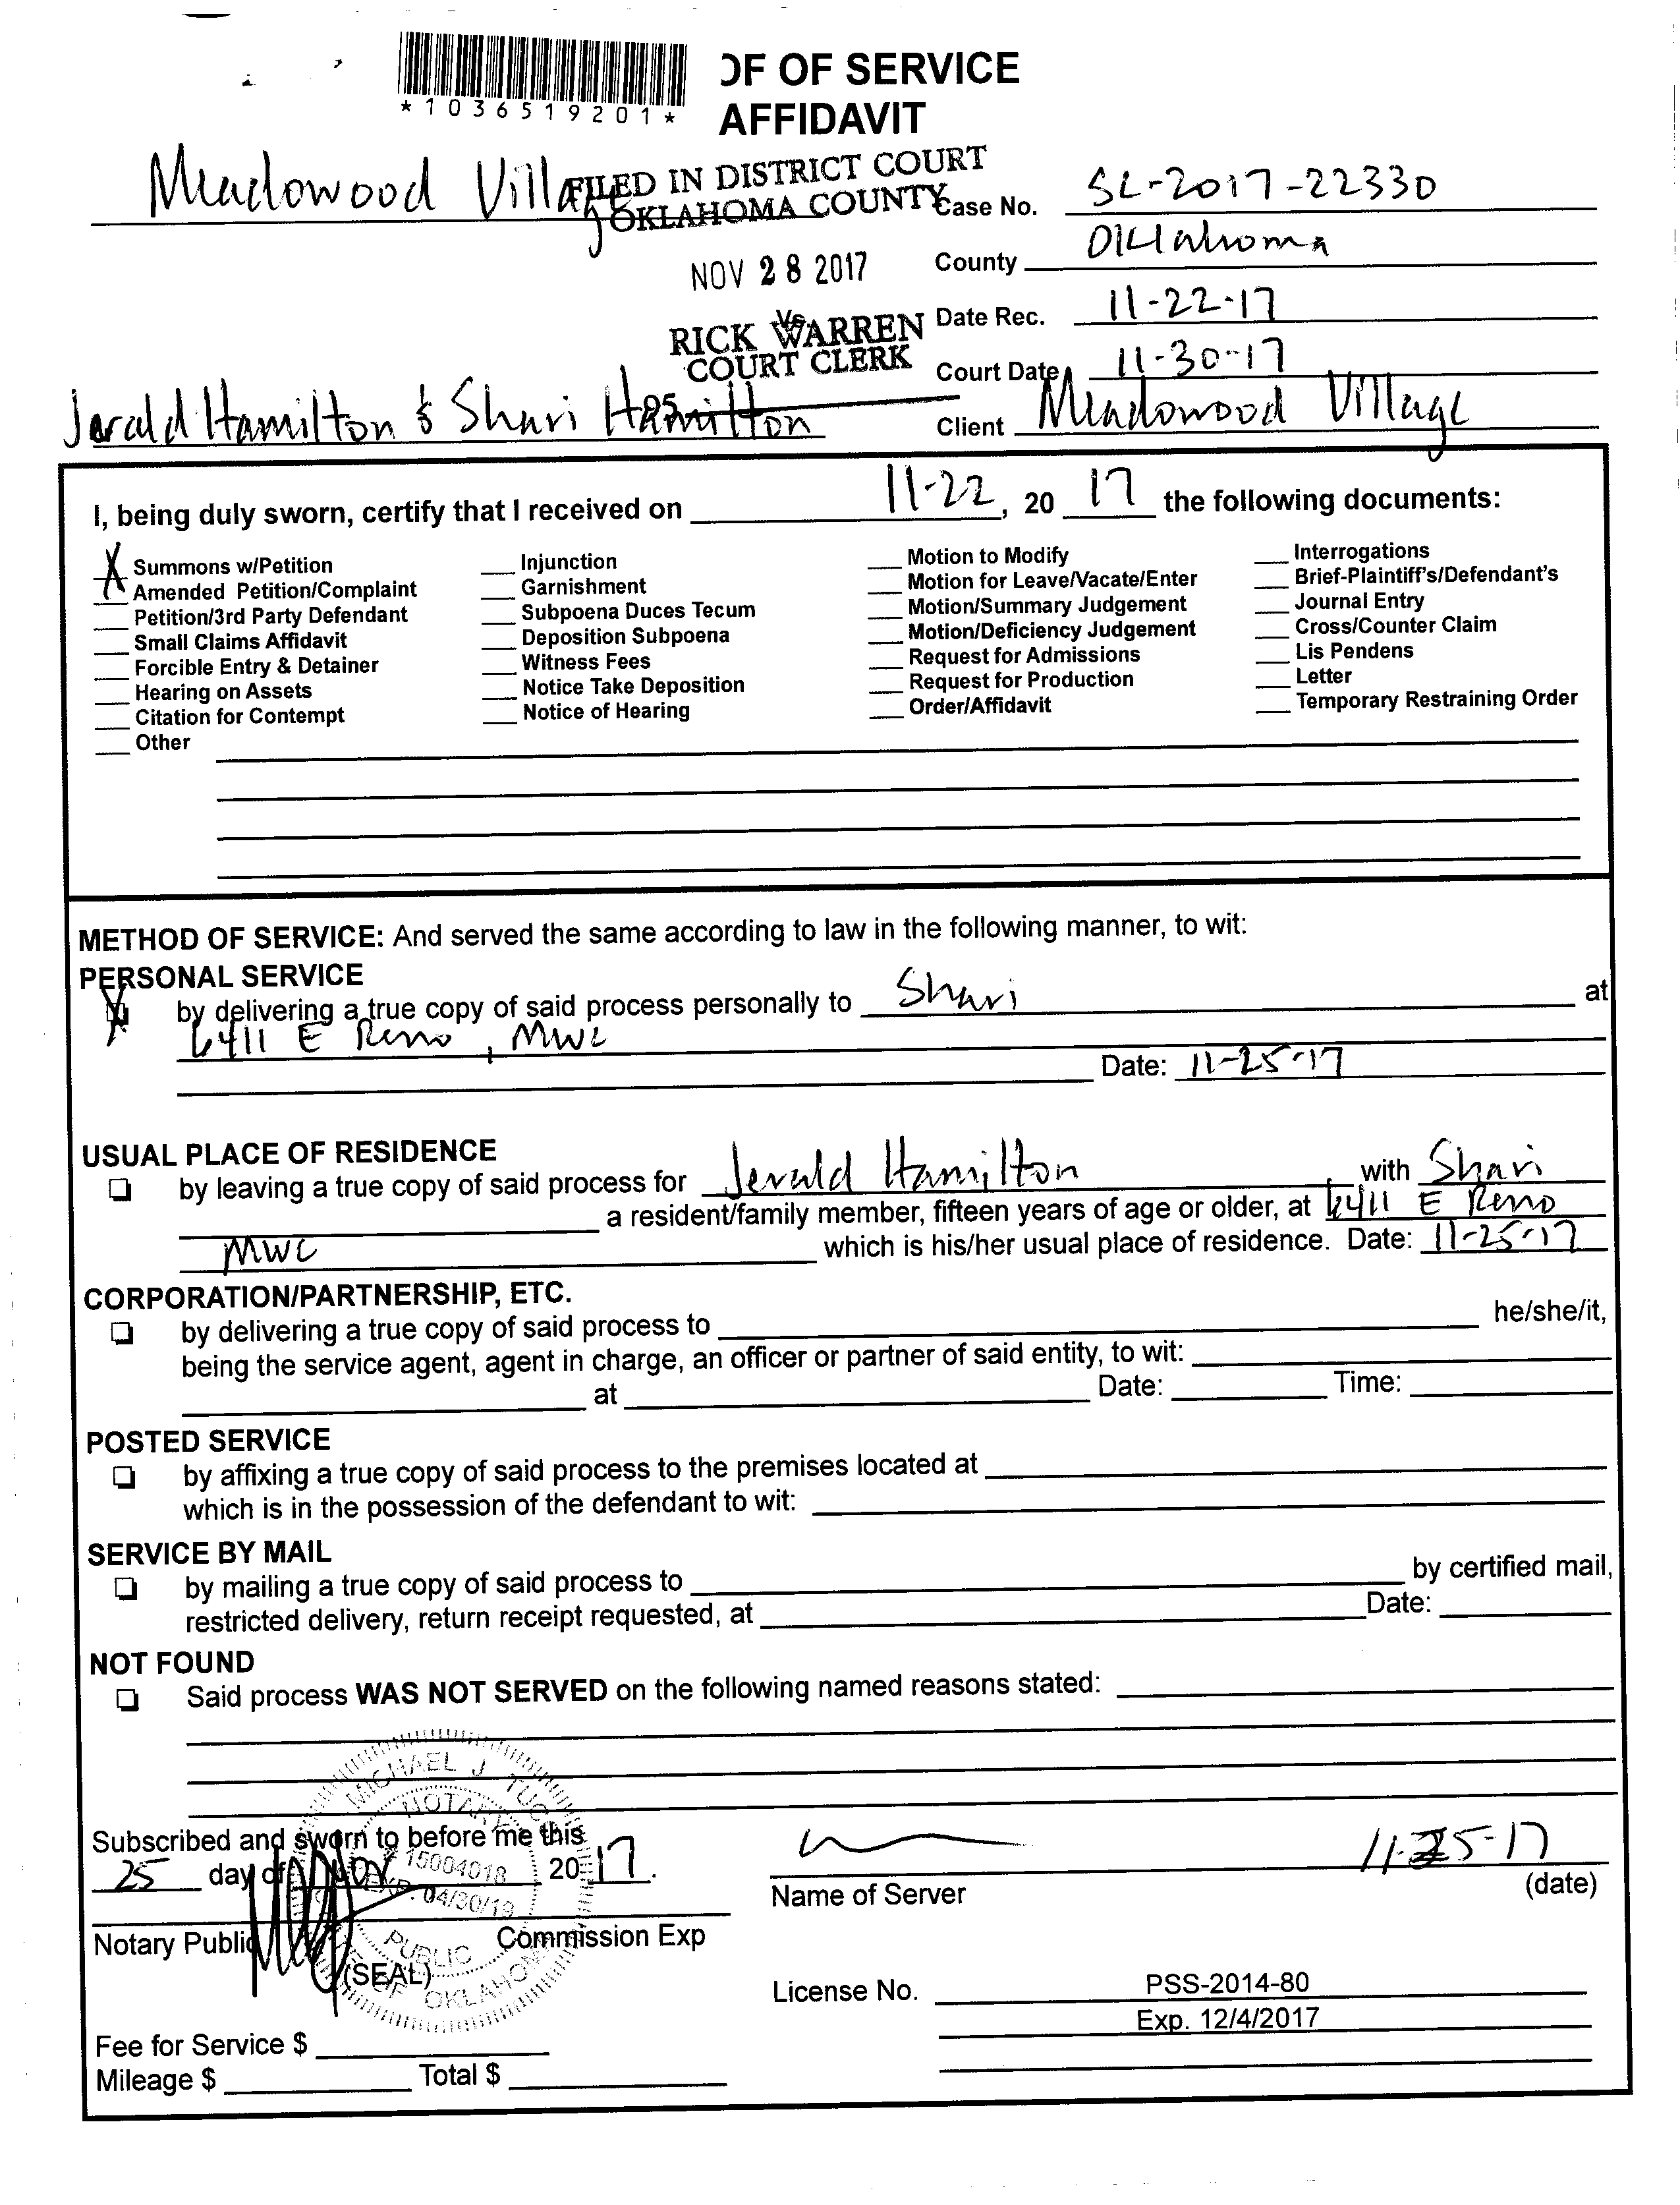 *1036519201*
OF OF SERVICE
AFFIDAVIT
Meadowood Village
FILED IN DISTRICT COURT
OKLAHOMA COUNTY
Case No. SC-2017-22330
NOV 28 2017
County Oklahoma
Vs
RICK WARREN
COURT CLERK
Date Rec. 11-22-17
Court Date 11-30-17
95
Jerald Hamilton & Shari Hamilton
Client Meadowood Village
I, being duly sworn, certify that I received on 11-22, 20 17 the following documents:
X Summons w/Petition
Amended Petition/Complaint
Petition/3rd Party Defendant
Small Claims Affidavit
Forcible Entry & Detainer
Hearing on Assets
Citation for Contempt
Other
Injunction
Garnishment
Subpoena Duces Tecum
Deposition Subpoena
Witness Fees
Notice Take Deposition
Notice of Hearing
Motion to Modify
Motion for Leave/Vacate/Enter
Motion/Summary Judgement
Motion/Deficiency Judgement
Request for Admissions
Request for Production
Order/Affidavit
Interrogations
Brief-Plaintiff's/Defendant's
Journal Entry
Cross/Counter Claim
Lis Pendens
Letter
Temporary Restraining Order
METHOD OF SERVICE: And served the same according to law in the following manner, to wit:
PERSONAL SERVICE
X by delivering a true copy of said process personally to Shari at
6411 E Reno, MWC
Date: 11-25-17
USUAL PLACE OF RESIDENCE
by leaving a true copy of said process for Jerald Hamilton with Shari
a resident/family member, fifteen years of age or older, at 6411 E Reno
MWC which is his/her usual place of residence. Date: 11-25-17
CORPORATION/PARTNERSHIP, ETC.
by delivering a true copy of said process to he/she/it,
being the service agent, agent in charge, an officer or partner of said entity, to wit:
at Date: Time:
POSTED SERVICE
by affixing a true copy of said process to the premises located at
which is in the possession of the defendant to wit:
SERVICE BY MAIL
by mailing a true copy of said process to by certified mail,
restricted delivery, return receipt requested, at Date:
NOT FOUND
Said process WAS NOT SERVED on the following named reasons stated:
MICHAEL J TUC
NOTARY
# 15004018
EXP. 04/30/19
PUBLIC
OF OKLAHOMA
Subscribed and sworn to before me this
25 day of Nov 20 17.
11-25-17
Name of Server (date)
Notary Public Commission Exp
(SEAL)
License No. PSS-2014-80
Exp. 12/4/2017
Fee for Service $
Mileage $ Total $